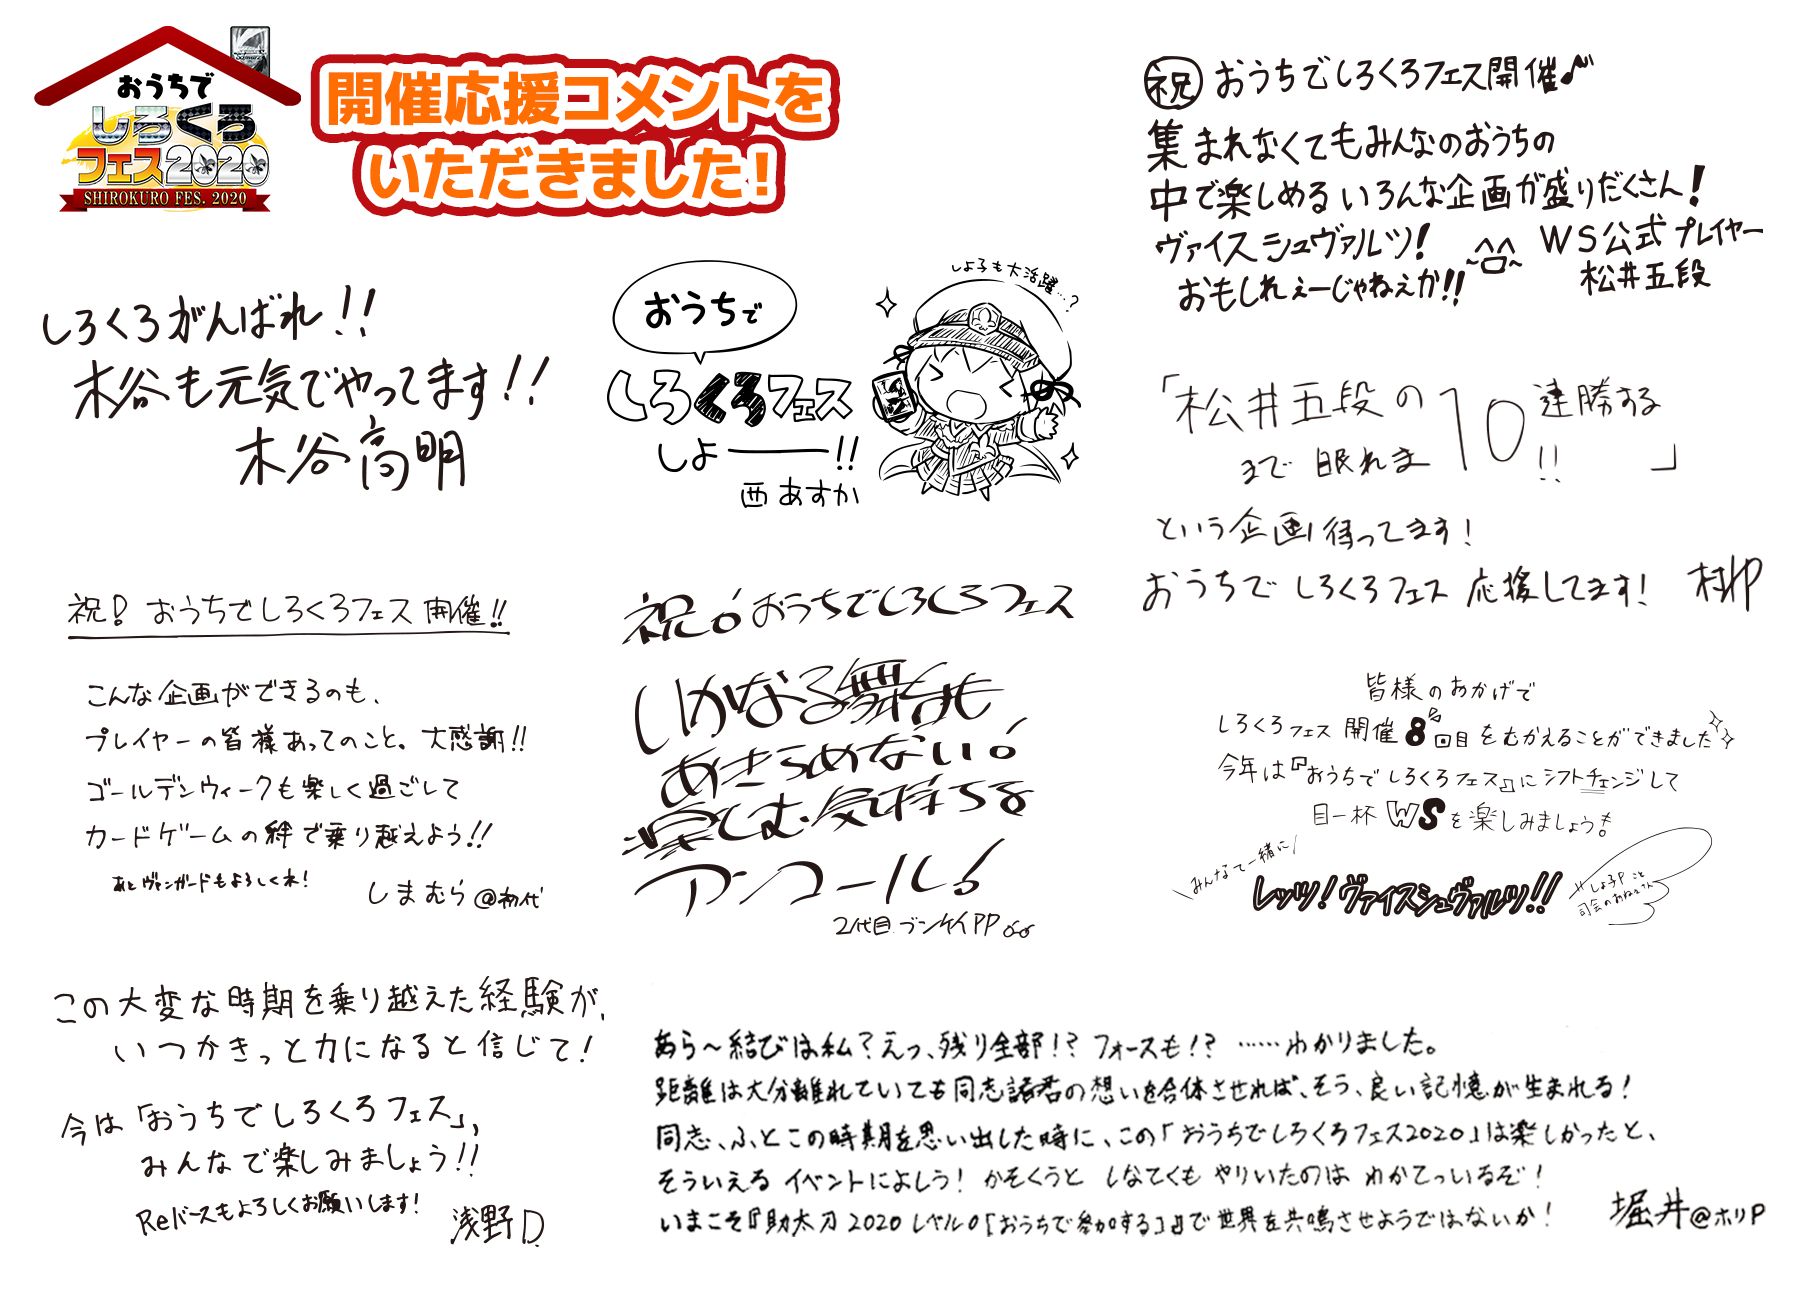 おうちで
しろくろ
フェス2020
SHIROKURO FES. 2020
開催応援コメントを
いただきました!
祝 おうちでしろくろフェス開催♪
集まれなくてもみんなのおうちの
中で楽しめるいろんな企画が盛りだくさん!
ヴァイスシュヴァルツ!
おもしれぇーじゃねぇか!!
WS公式プレイヤー
松井五段
しろくろがんばれ!!
木谷も元気でやってます!!
木谷高明
しよ子も大活躍…?
おうちで
しろくろフェス
しよ――!!
西あすか
「松井五段の10連勝する
まで眠れま10!!」
という企画待ってます!
おうちでしろくろフェス 応援してます! 村P
祝! おうちでしろくろフェス開催!!
こんな企画ができるのも、
プレイヤーの皆様あってのこと。大感謝!!
ゴールデンウィークも楽しく過ごして
カードゲームの絆で乗り越えよう!!
あとヴァンガードもよろしくね!
しまむら@初代
祝! おうちでしろくろフェス
いかなる舞台も
あきらめない!
楽しむ気持ちを
アンコール!
2代目ブンケイPP
皆様のおかげで
しろくろフェス開催8回目をむかえることができました
今年は『おうちでしろくろフェス』にシフトチェンジして
目一杯WSを楽しみましょう!
\みんなで一緒に/
レッツ!ヴァイスシュヴァルツ!!
しよ子Pこと
司会のおねえさん
この大変な時期を乗り越えた経験が、
いつかきっと力になると信じて!
今は「おうちでしろくろフェス」、
みんなで楽しみましょう!!
Reバースもよろしくお願いします!
浅野D.
あら〜結びは私?えっ、残り全部!?フォースも!?……わかりました。
距離は大分離れていても同志諸君の想いを合体させれば、そう、良い記憶が生まれる!
同志、ふとこの時期を思い出した時に、この「おうちでしろくろフェス2020」は楽しかったと、
そういえるイベントによしう! かそくうと しなてくも やりいたのは わかてっいるぞ!
いまこそ『助太刀2020レベル0[おうちで参加する]』で世界を共鳴させようではないか!
堀井@ホリP